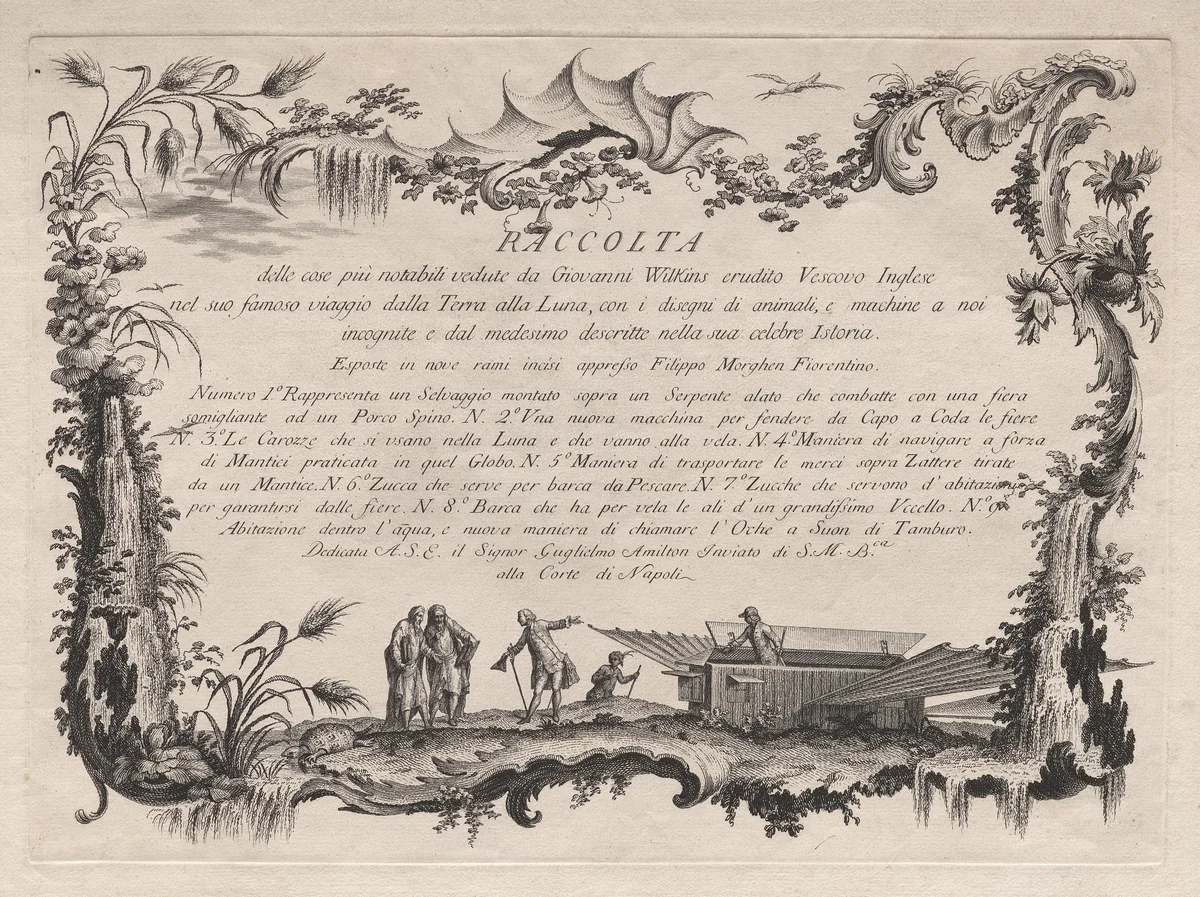 RACCOLTA
delle cose più notabili vedute da Giovanni Wilkins erudito Vescovo Inglese
nel suo famoso viaggio dalla Terra alla Luna, con i disegni di animali, e machine a noi
incognite e dal medesimo descritte nella sua celebre Istoria.
Esposte in nove rami incisi appreſso Filippo Morghen Fiorentino.
Numero 1º Rappresenta un Selvaggio montato sopra un Serpente alato che combatte con una fiera
somigliante ad un Porco Spino. N. 2.º Vna nuova macchina per fendere da Capo a Coda le fiere
N. 3.º Le Carozze che si vsano nella Luna e che vanno alla vela. N. 4.º Maniera di navigare a forza
di Mantici praticata in quel Globo. N. 5º Maniera di trasportare le merci sopra Zattere tirate
da un Mantice. N. 6.º Zucca che serve per barca da Pescare. N. 7º Zucche che servono d'abitazione
per garantirsi dalle fiere. N. 8.º Barca che ha per vela le ali d'un grandiſsimo Vccello. N.º 9.
Abitazione dentro l'aqua, e nuova maniera di chiamare l'Oche a Suon di Tamburo.
Dedicata A. S. E. il Signor Guglielmo Amilton Inviato di S. M. B.ca
alla Corte di Napoli